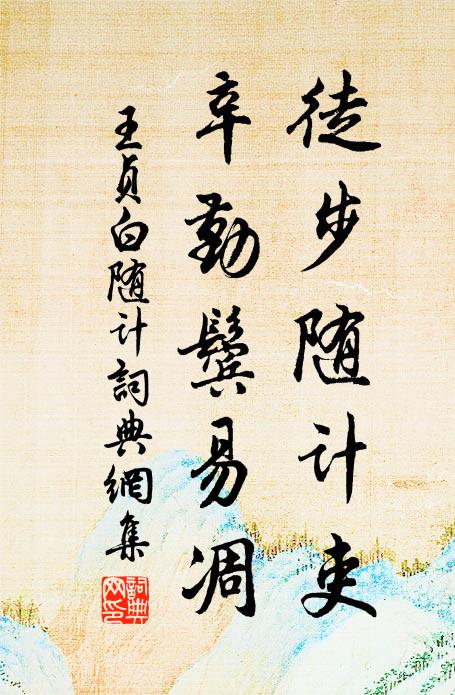 徒步随计吏
辛勤鬓易凋
王贞白随计詞典網集
詞典网印